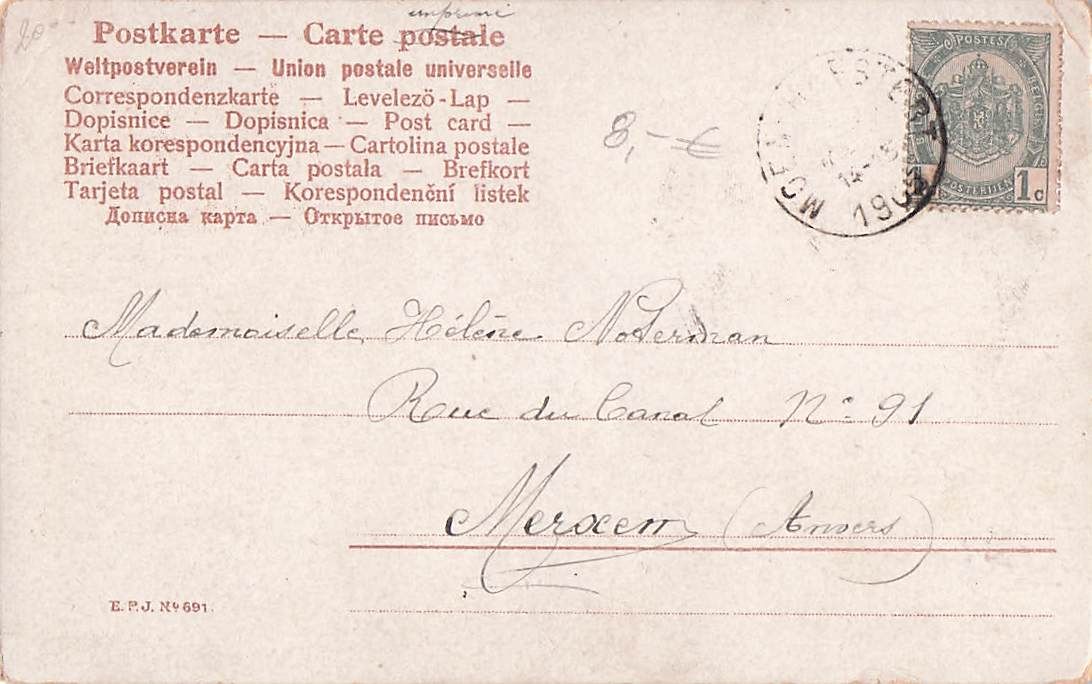 20
imprimé
Postkarte — Carte postale
Weltpostverein — Union postale universelle
Correspondenzkarte — Levelező-Lap —
Dopisnice — Dopisnica — Post card —
Karta korespondencyjna — Cartolina postale
Briefkaart — Carta postala — Brefkort
Tarjeta postal — Korespondenční listek
Дописна карта — Открытое письмо
8,- €
POSTES
POSTERIJEN
1c
Mademoiselle Hélène Noterman
Rue du Canal Nº 91
Merxem (Anvers)
E.P.J. Nº 691.